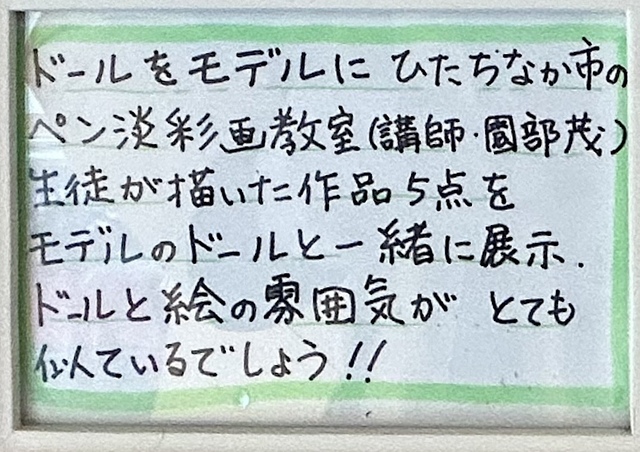 ドールをモデルに ひたちなか市の
ペン淡彩画教室(講師・園部茂)
生徒が描いた作品5点を
モデルのドールと一緒に展示.
ドールと絵の雰囲気が とても
似ているでしょう!!